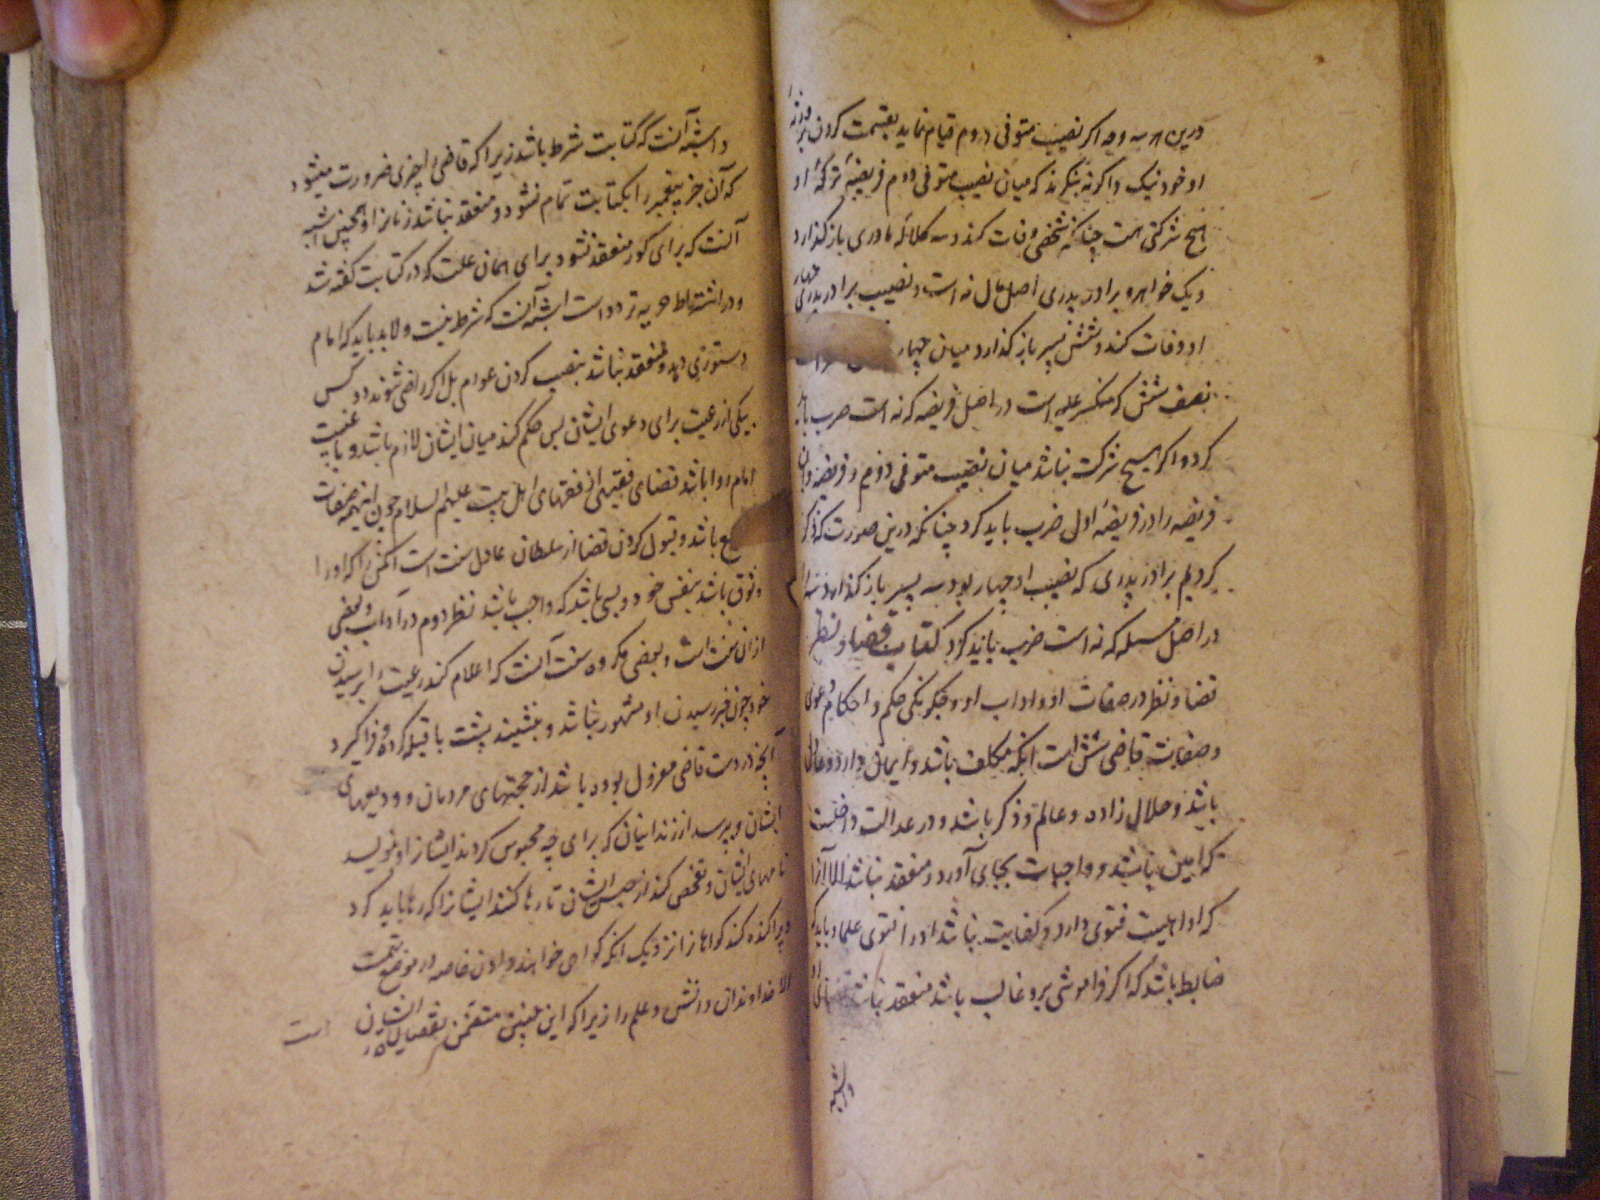 درین هر سه وجه اگر نصیب متوفی دوم قیام نماید بقسمت کردن بر ورثهٔ
او خود نیک و اگر نه بنگرند که میان نصیب متوفی دوم و فریضهٔ ترکهٔ او
هیچ شرکتی هست چنانکه شخصی وفات کند و سه کلالهٔ مادری باز گذارد
و یک خواهر و برادر پدری اصل مال نه است و نصیب برادر پدری چهار
او وفات کند و شش پسر باز گذارد میان چهار
نصف شش که منکسر علیه است در اصل فریضه که نه است ضرب باید
کرد و اگر هیچ شرکت نباشد میان نصیب متوفی دوم و فریضه او آن
فریضه را در فریضهٔ اول ضرب باید کرد چنانکه درین صورت که ذکر
کردیم برادر پدری که نصیب او چهار بود سه پسر باز گذارد سه را
در اصل مسله که نه است ضرب باید کرد کتاب قضا و نظر
قضا و نظر در صفات او و اداب او و چگونگی حکم و احکام دعوی
و صفات قاضی شش است آنکه مکلف باشد و ایمان دارد و عادل
باشد و حلال زاده و عالم و ذکر باشد و در عدالت داخلست
که امین باشد و واجبات بجای آورد و منعقد نباشد الا آنرا
که او اهلیت فتوی دارد و کفایت نباشد او را فتوی علما و باید که
ضابط باشد که اگر فراموشی برو غالب باشد منعقد نباشد قضای او
و اشبه
و اشبه آنست که کتابت شرط باشد زیرا که قاضی را بچیزی ضرورت میشود
که آن جز پیغمبر را بکتابت تمام نشود و منعقد نباشد زنانرا و همچنین اشبه
آنست که برای کور منعقد نشود برای همان علت که در کتابت گفته شد
و در اشتراط حریه تردد است اشبه آنست که شرط نیست و لابد باید که امام
دستوری دهد و منعقد نباشد بنصب کردن عوام بل اگر راضی شوند دو کس
بیکی از رعیت برای دعوی ایشان پس حکم کند میان ایشان لازم باشد و با غیبت
امام روا باشد قضای فقیهی از فقهای اهل بیت علیهم السلام چون اینهمه صفات
باشد و قبول کردن قضا از سلطان عادل سنت است آنکس را که او را
وثوق باشد بنفس خود و بسی باشد که واجب باشد نظر دوم در آداب و بعضی
از ان سنت است و بعضی مکروه سنت آنست که اعلام کند رعیت را برسیدن
خود چون خبر رسیدن او مشهور نباشد و بنشیند پشت با قبله کرده و فرا گیرد
آنچه در دست قاضی معزول بوده باشد از حجتهای مردمان و ودیعهای
ایشان و بپرسد از زندانیان که برای چه محبوس کردند ایشانرا و بنویسد
نامهای ایشان و تفحص کند از حبس ایشان تا رها کند ایشانرا که رها باید کرد
و پراکنده کند گواهانرا نزدیک آنکه گواهی خواهند دادن خاصه در موضع تهمت
الا خداوندان دانش و علم را زیرا که این جنس متضمن نقصان ایشان است